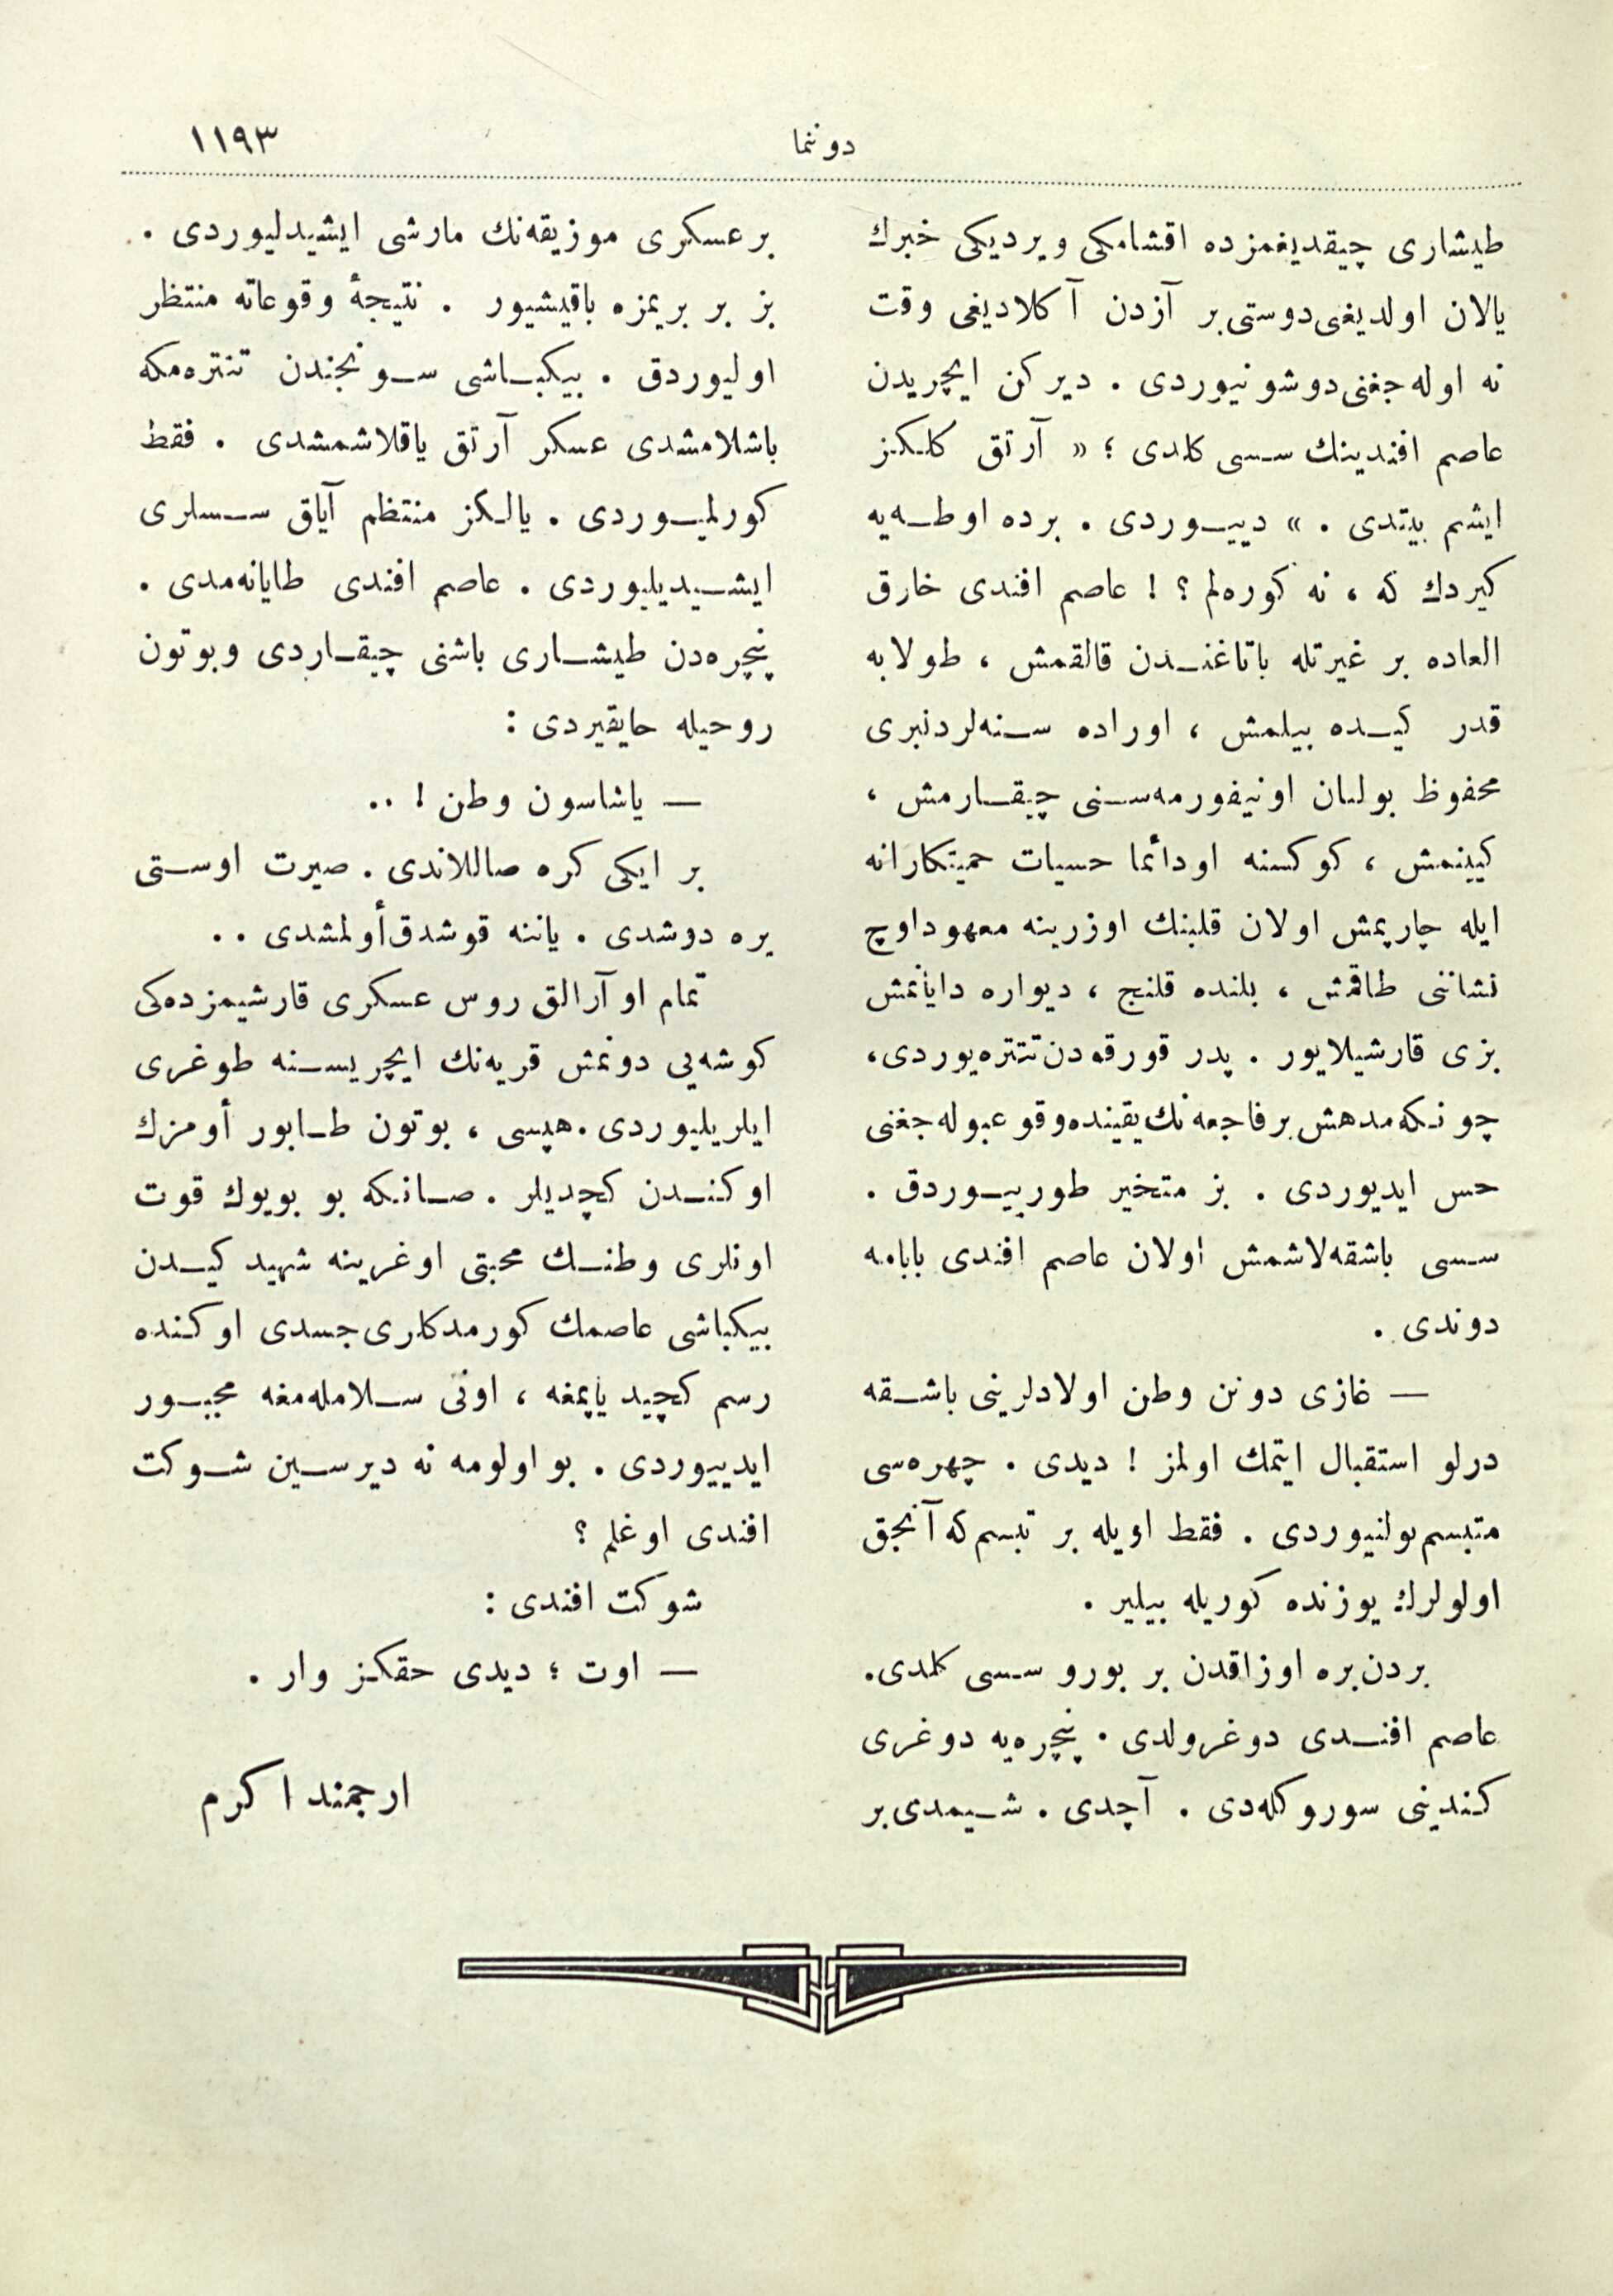 دوننما
١١٩٣
طیشاری چیقدیغمزده اقشامکی ویردیکی خبرك
یالان اولدیغی دوستی بر آزدن آكلادیغی وقت
نه اوله جغنی دوشونیوردی . دیرکن ایچریدن
عاصم افندینك سسی کلدی ؛ « آرتق کلکز
ایشم بیتدی . » دییوردی . برده اوطه یه
کیردك که ، نه کوره لم ؟ ! عاصم افندی خارق
العاده بر غیرتله یاتاغندن قالقمش ، طولابه
قدر کیده بیلمش ، اوراده سنه لردنبری
محفوظ بولنان اونیفورمه سنی چیقارمش ،
کیینمش ، کوکسنه اودائما حسیات حمیتکارانه
ایله چارپمش اولان قلبنك اوزرینه معهود اوچ
نشاننی طاقمش ، بلنده قلنج ، دیواره دایانمش
بزی قارشیلایور . پدر قورقودن تتتره یوردی،
چونکه مدهش بر فاجعه نك یقینده وقوعبوله جغنی
حس ایدیوردی . بز متخیر طورییوردق .
سسی باشقه لاشمش اولان عاصم افندی بابامه
دوندی .
— غازی دونن وطن اولادلرینی باشقه
درلو استقبال ایتمك اولمز ! دیدی . چهره سی
متبسم بولنیوردی . فقط اویله بر تبسم که آنجق
اولولرك یوزنده کوریله بیلیر .
بردن بره اوزاقدن بر بورو سسی کلدی.
عاصم افندی دوغرولدی . پنچره یه دوغری
کندینی سوروکله دی . آچدی . شیمدی بر
بر عسکری موزیقه نك مارشی ایشیدلیوردی .
بز بر بریمزه باقیشیور . نتیجۀ وقوعاته منتظر
اولیوردق . بیکباشی سونجندن تنتره مکه
باشلامشدی عسکر آرتق یاقلاشمشدی . فقط
کورلمیوردی . یالکز منتظم آیاق سسلری
ایشیدیلیوردی . عاصم افندی طایانه مدی .
پنچره دن طیشاری باشنی چیقاردی وبوتون
روحیله حایقیردی :
— یاشاسون وطن ! ..
بر ایکی کره صاللاندی . صیرت اوستی
یره دوشدی . یاننه قوشدق أولمشدی . .
تمام او آرالق روس عسکری قارشیمزده کی
کوشه یی دونمش قریه نك ایچریسنه طوغری
ایلریلیوردی . هپسی ، بوتون طابور أومزك
اوکندن کچدیلر . صانکه بو بویوك قوت
اونلری وطنك محبتی اوغرینه شهید کیدن
بیکباشی عاصمك کورمدکلری جسدی اوکنده
رسم کچید یاپمغه ، اونی سلامله مغه مجبور
ایدییوردی . بو اولومه نه دیرسین شوکت
افندی اوغلم ؟
شوکت افندی :
— اوت ؛ دیدی حقکز وار .
ارجمند اکرم